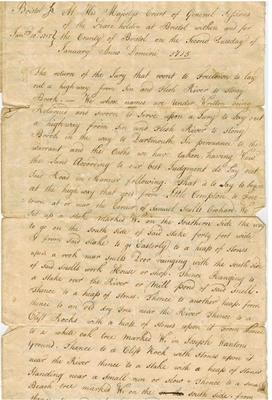 Bristol Ss At His Majestys Court of General Sessions
of the Peace holden at Bristol within and for
the County of Bristol on the Second Tuesday of
January Anno Domini 1715
The return of the Jury that went to Freetown to lay
out a high way from Fin and Flesh River to Stony
Brook. We whose names are under Written being
and sworn to Serve upon a Jury to lay out
a high way from Fin and Flesh River to Stony
Brook in the way to Dartmouth In pursuance to the
warrant and the Oaths we have taken, having laid
the Same According to our best Judgment do lay out
Said Road in Manner following. That is to Say begin
at the high way that goes from little Compton to free
town at or near the Corner of Samuel Snells Orchard We
Set up a Stake Marked W. on the Southern Side the way
to go on the South Side of Said Stake forty foot wide
from Said Stake to go Easterly to a heap of Stones
upon a rock near Snells Door ranging with the South Side
of Said Snells work House or Shop. Thence Ranging to
a Stake over the River or Mill pond of Said Snells
Thence to a heap of Stones. Thence to another heap from
thence to an old dry tree near the River Thence to a
Clift Rocks with a heap of Stones upon it from thence
to a white oak tree Marked W. in Joseph Wantons
Ground. Thence to a Clift Rock with Stones upon it
near the River thence to a Stake with a heap of Stones
Standing near a Small run or Slow. Thence to a Small
Beach tree marked W. on the South side. from